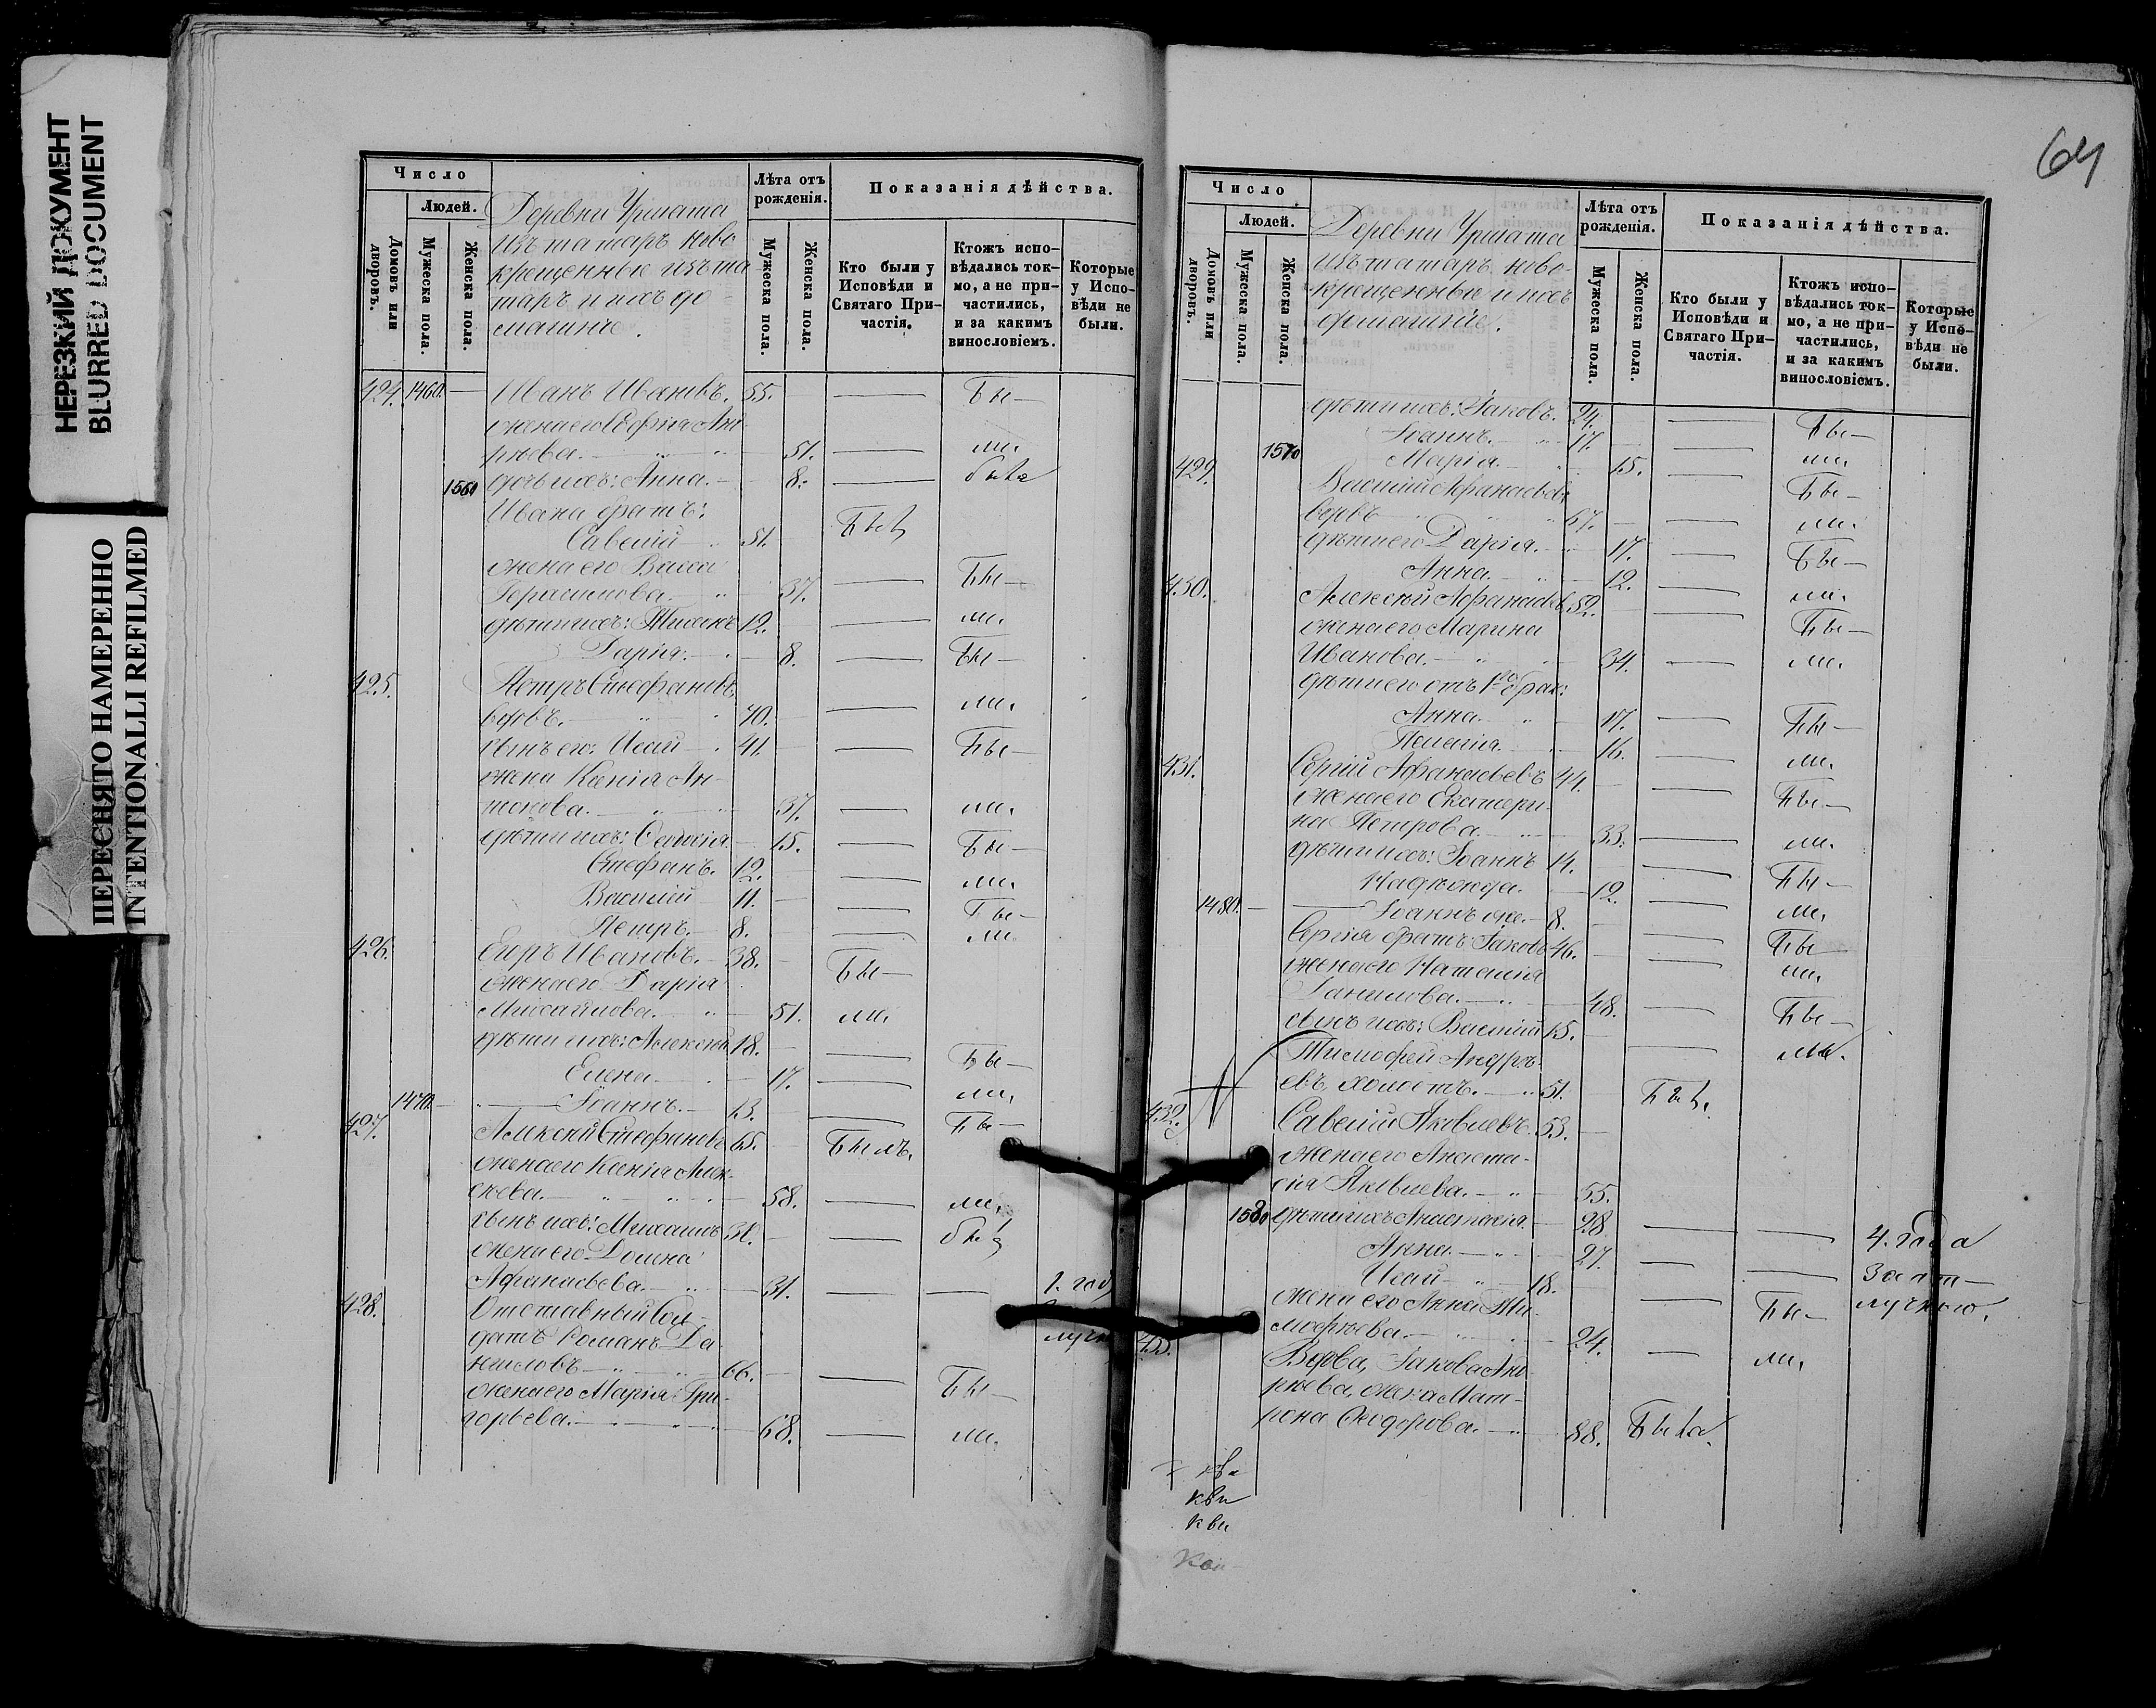 НЕРЕЗКИЙ ДОКУМЕНТ
BLURRED DOCUMENT
ПЕРЕСНЯТО НАМЕРЕННО
INTENTIONALLI REFILMED
Число
Людей.
Домовъ или дворовъ.
Мужеска пола.
Женска пола.
Деревни Урмата
изъ татаръ ново
крещенные изъ та
таръ и ихъ до
машніе.
Лѣта отъ рожденія.
Мужеска пола.
Женска пола.
Показанія дѣйства.
Кто были у Исповѣди и Святаго При-частія.
Ктожъ испо-вѣдались ток-мо, а не при-частились, и за какимъ винословіемъ.
Которые у Испо-вѣди не были.
424. 1460. — Иванъ Ивановъ. 55. — Бы—
жена его Софія Анд
рѣева. 51. — ли.
1560 дочь ихъ: Анна. 8. — была
Ивана братъ:
Савелій 51. Былъ
жена его Васса
Герасимова. 37. — Бы—
дѣти ихъ: Тихонъ 12. — ли.
Дарія. 8. — Бы—
425. Петръ Стефановъ
вдовъ. 70. — ли.
сынъ его: Исай 41. — Бы—
жена Ксенія Ан-
тонова. 37. — ли.
дѣти ихъ: 15. — Бы—
Стефанъ. 12. — ли.
Василій 11. — Бы—
Петръ. 8. — ли
426. Егоръ Ивановъ. 38. Бы—
жена его Дарія
Михайлова. 51. ли.
дѣти ихъ: Алексѣй 18. — Бы—
Елена 17. — ли.
1470. — Іоаннъ. 13. — Бы—
427. Алексѣй Стефановъ 65. Былъ.
жена его Ксенія Алек
сѣева. 58. — ли.
сынъ ихъ: Михаилъ 30. —
жена его Домна
Афанасьева 31. — — 1. год
428. Отставный Сол-
датъ Романъ Да
ниловъ 66. — Бы—
жена его Марія Гри-
горьева. 68. — ли.
64
Число
Людей.
Домовъ или дворовъ.
Мужеска пола.
Женска пола.
Деревни Урмата
изъ татаръ ново-
крещенные и ихъ
домашніе.
Лѣта отъ рожденія.
Мужеска пола.
Женска пола.
Показанія дѣйства.
Кто были у Исповѣди и Святаго При-частія.
Ктожъ испо-вѣдались ток-мо, а не при-частились, и за какимъ винословіемъ.
Которые у Испо-вѣди не были.
дѣти ихъ: Іаковъ. 24. — Бы—
Іоаннъ. 17. — ли.
1570 Марія. 15. — Бы—
429. Василій Афанасьевъ
вдовъ 67. — ли.
дѣти его Дарія. 17. — Бы—
Анна. 12. — ли.
430. Алексѣй Афанасьев. 52. — Бы—
жена его Марина
Иванова. 34. — ли.
дѣти его отъ 1го брак:
Анна 17. — Бы—
Пелагія. 16. — ли.
431. Сергій Афанасьевъ 44. — Бы—
жена его Екатери-
на Петрова 33. — ли.
дѣти ихъ: Іоаннъ 14. — Бы—
Надежда. 12. — ли.
1480. — Іоаннъ же. 8. — Бы
Сергія братъ Іаковъ 46. — ли.
жена его Наталія
Данилова. 48. — Бы—
сынъ ихъ: Василій 15. — ли.
Тимофей Андре
евъ холостъ. 51. Былъ.
432. Савелій Яковлевъ 53. —
жена его Анаста-
сія Яковлева. 55.
1580 дѣти ихъ Анастасія. 28. — — 4. года
Анна. 27. — — За от—
Исай 18. — Бы— лучкою.
жена его Анна Ти-
мофѣева. 24. — ли.
433. Вдова, Іакова Анд-
рѣева, жена Мат-
рона Ѳеодорова. 88. Была.
кви
кви